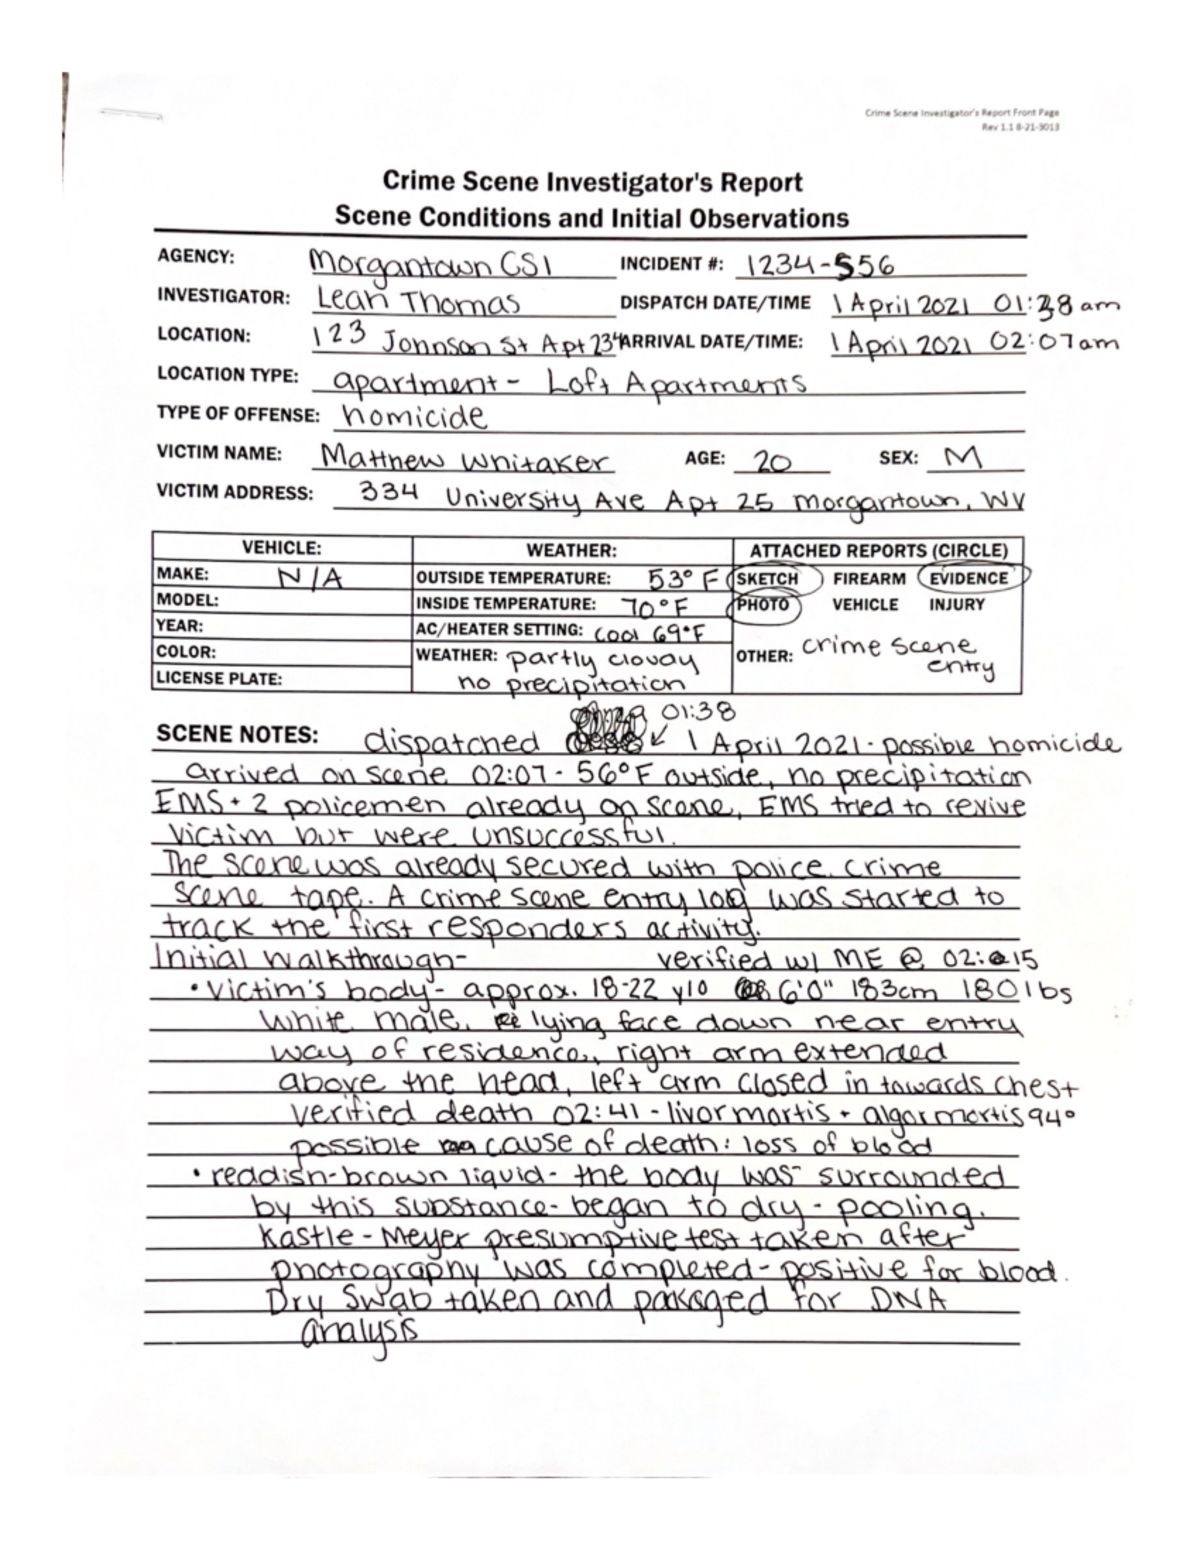 Crime Scene Investigator's Report Front Page
Rev 1.1 8-21-3013
Crime Scene Investigator's Report
Scene Conditions and Initial Observations
AGENCY: Morgantown CSI INCIDENT #: 1234-556
INVESTIGATOR: Leah Thomas DISPATCH DATE/TIME 1 April 2021 01:38 am
LOCATION: 123 Johnson St Apt 234 ARRIVAL DATE/TIME: 1 April 2021 02:07am
LOCATION TYPE: apartment - Loft Apartments
TYPE OF OFFENSE: homicide
VICTIM NAME: Matthew Whitaker AGE: 20 SEX: M
VICTIM ADDRESS: 334 University Ave Apt 25 Morgantown, WV
VEHICLE: WEATHER: ATTACHED REPORTS (CIRCLE)
MAKE: N/A OUTSIDE TEMPERATURE: 53° F SKETCH FIREARM EVIDENCE
MODEL: INSIDE TEMPERATURE: 70°F PHOTO VEHICLE INJURY
YEAR: AC/HEATER SETTING: cool 69°F
COLOR: WEATHER: partly cloudy OTHER: crime scene entry
LICENSE PLATE: no precipitation
01:38
SCENE NOTES: dispatched 1 April 2021 - possible homicide
arrived on scene 02:07 - 56°F outside, no precipitation
EMS + 2 policemen already on scene, EMS tried to revive
victim but were unsuccessful.
The scene was already secured with police crime
scene tape. A crime scene entry log was started to
track the first responders activity.
Initial walkthrough- verified w/ ME @ 02:15
• victim's body - approx. 18-22 y/o 6'0" 183cm 180lbs
white male, lying face down near entry
way of residence, right arm extended
above the head, left arm closed in towards chest
verified death 02:41 - livor mortis + algor mortis 94°
possible cause of death: loss of blood
• reddish-brown liquid - the body was surrounded
by this substance - began to dry - pooling.
Kastle-Meyer presumptive test taken after
photography was completed - positive for blood.
Dry swab taken and packaged for DNA
analysis